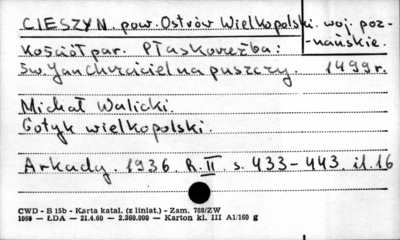 CIESZYN. pow. Ostrów Wielkopolski. woj. poz-
nańskie.
Kościół par. Płaskorzeźba:
Św Jan Chrzciciel na puszczy. 1499 r.
Michał Walicki.
Gotyk wielkopolski.
Arkady. 1936. R. II s. 433-443. il. 16
CWD - B 15b - Karta katal. (z liniat.) - Zam. 788/ZW
1060 — ŁDA — 21.4.60 — 2.360.000 — Karton kl. III A1/160 g